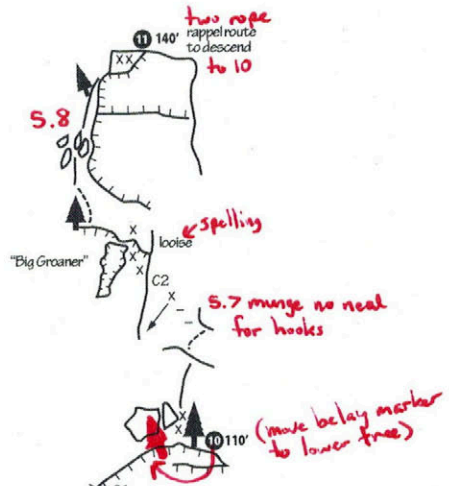 two rope
11 140' rappel route
to descend
to 10
XX
5.8
X
spelling
looise
X
X
"Big Groaner"
X
C2
X
5.7 munge no neal
for hooks
X
X
(move belay marker
to lower tree)
10 110'